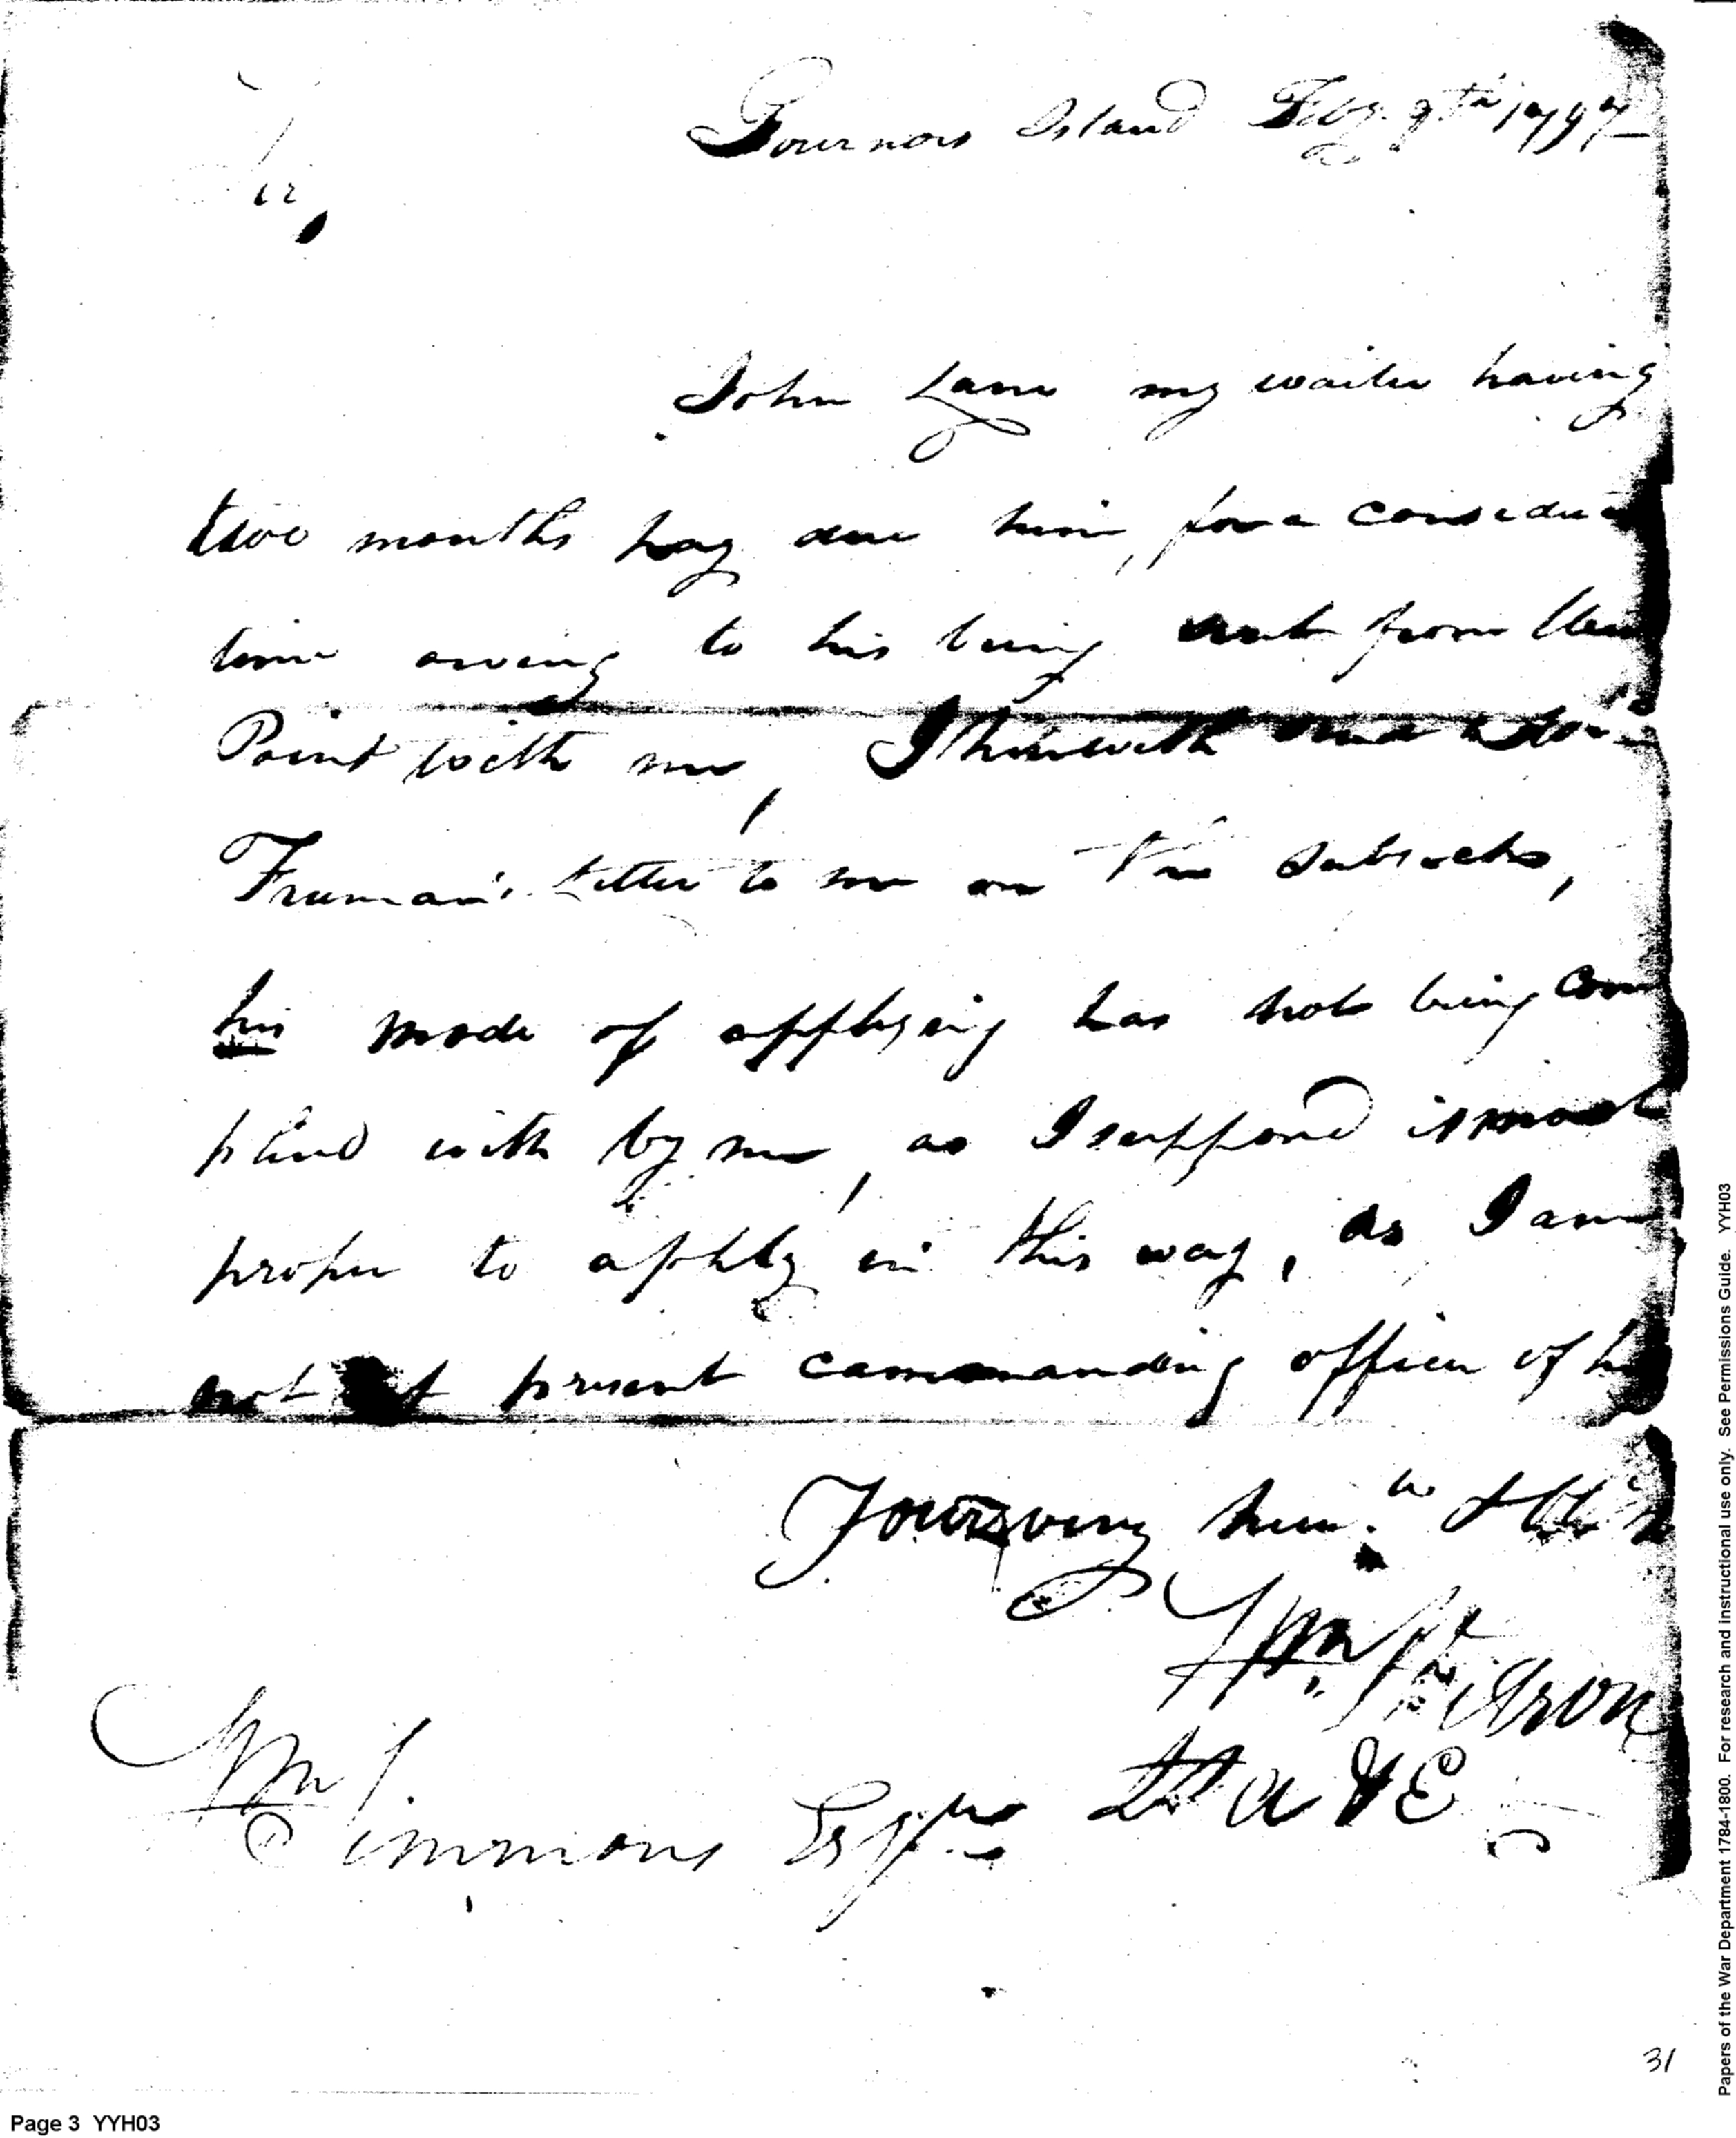 Governors Island Feby. 9th 1797
Sir,
John Lane my waiter having
two months pay due him, for a
time owing to his being sent from
Point with me, I herewith send
Freeman's Letter to me on the Subsects,
his mode of applying has not being com
plied with by me, as I suppond is most
proper to apply in this way, as I am
not at present commanding officer of
Yours very hum.
Wm.
Lt A & E
Wm Simmons Esqre
31
Page 3 YYH03
Papers of the War Department 1784-1800. For research and instructional use only. See Permissions Guide. YYH03